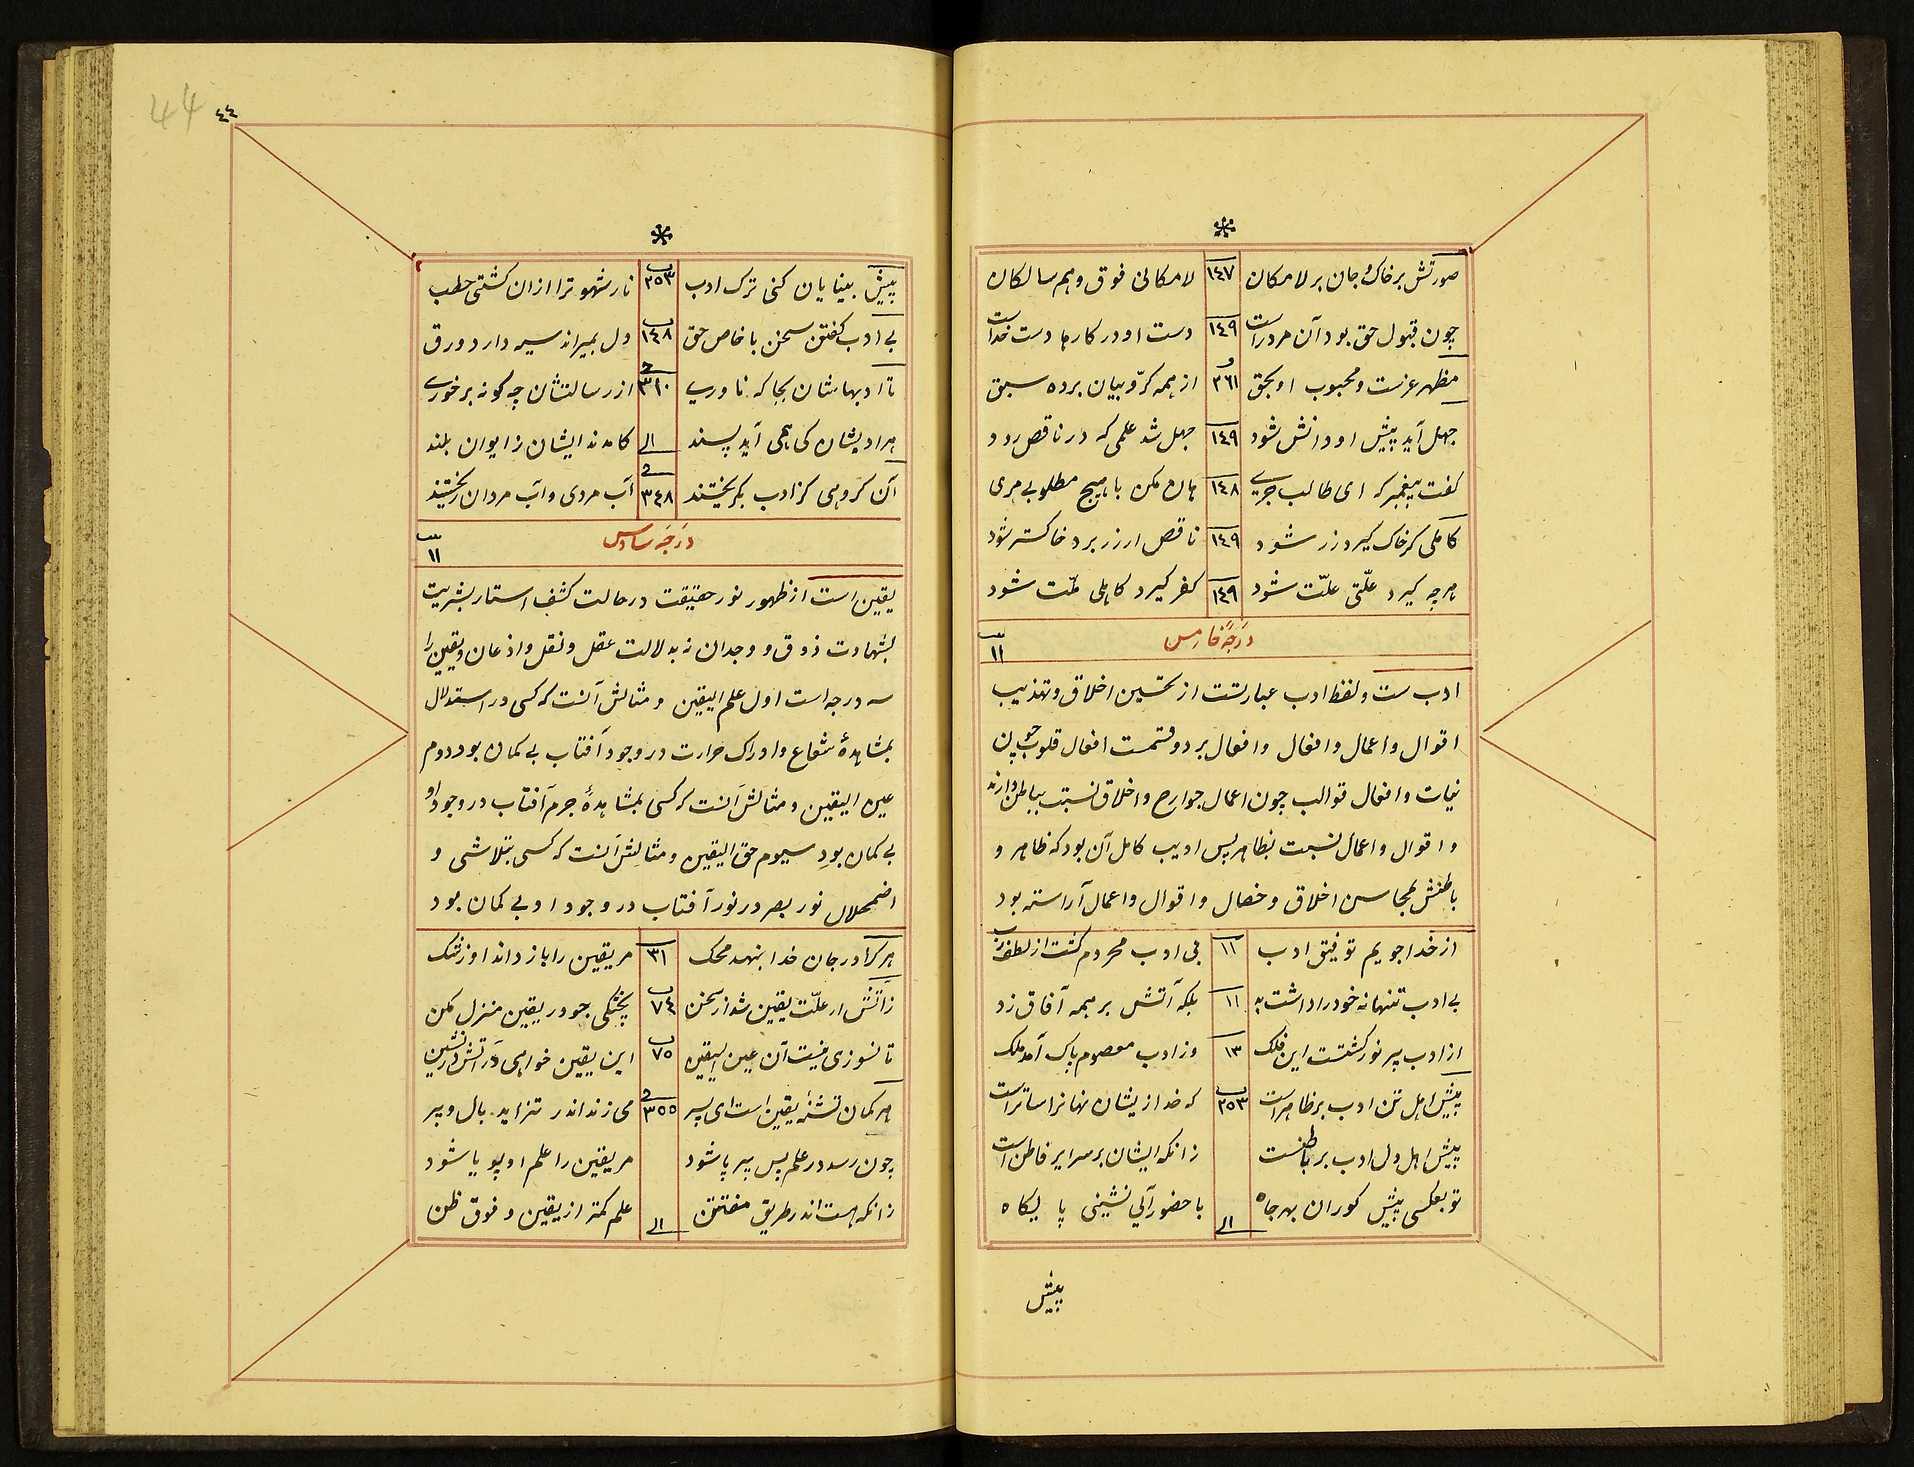 صورتش بر خاک و جان بر لامکان ١٤٧ لامکانی فوق وهم سالکان
چون قبول حق بود آن مرد راست ١٤٩ دست او در کارها دست خداست
مظهر عزست و محبوب او بحق ٣٦١ از همه کرّوبیان برده سبق
جهل آید پیش او دانش شود ١٤٩ جهل شد علمی که در ناقص رود
کفت پیغمبر که ای طالب جری ١٤٨ هان مکن با هیچ مطلوبی مری
کاملی کر خاک کیرد زر شود ١٤٩ ناقص ار زر برد خاکستر شود
هرچه کیرد علّتی علّت شود ١٤٩ کفر کیرد کاملی ملّت شود
درجهٔ خامس ١١
ادب ست و لفظ ادب عبارتست از تحسین اخلاق و تهذیب
اقوال و اعمال و افعال و افعال بر دو قسمت افعال قلوب چون
نیات و افعال قوالب چون اعمال جوارح و اخلاق نسبت بباطن دارند
و اقوال و اعمال نسبت بظاهر پس ادیب کامل آن بود که ظاهر و
باطنش بمحاسن اخلاق و خصال و اقوال و اعمال آراسته بود
از خدا جویم توفیق ادب ١١ بی ادب محروم کشت از لطف رب
بی ادب تنها نه خود را داشت بد ١١ بلکه آتش بر همه آفاق زد
از ادب پر نور کشتست این فلک ١٣ وز ادب معصوم پاک آمد ملک
پیش اهل تن ادب بر ظاهر است ٢٥٣ که خدا زیشان نهانرا ساتر است
پیش اهل دل ادب بر باطنست زانکه ایشان بر سرایر فاطن است
تو بعکسی پیش کوران بهر جاه الی با حضور آئی نشینی پایکاه
پیش
٤٤
44
پیش بینایان کنی ترک ادب ٢٥٣ نار شهوترا ازان کشتی حطب
بی ادب کفتن سخن با خاص حق ١٤٨ دل بمیراند سیه دارد ورق
تا ادبهاشان بجا که ناوری ٣١٠ از رسالتشان چه کونه بر خوری
هر ادبشان کی همی آید پسند الی کامدند ایشان ز ایوان بلند
آن کروهی کز ادب بکریختند ٣٤٨ آب مردی و آب مردان ریختند
درجهٔ سادس ١١
یقین است از ظهور نور حقیقت در حالت کشف استار بشریت
بشهادت ذوق و وجدان نه بدلالت عقل و نقل و اذعان و یقین را
سه درجه است اول علم الیقین و مثالش آنست که کسی در استدلال
بمشاهدهٔ شعاع و ادراک حرارت در وجود آفتاب بی کمان بود دوم
عین الیقین و مثالش آنست که کسی بمشاهدهٔ جرم آفتاب در وجود او
بی کمان بود سیوم حق الیقین و مثالش آنست که کسی بتلاشی و
اضمحلال نور بصر در نور آفتاب در وجود او بی کمان بود
هر کرا در جان خدا بنهد محک ٣١ مر یقین را باز داند او ز شک
ز آتش ار علّت یقین شد از سخن ٧٤ پختکی جو در یقین منزل مکن
تا نسوزی نیست آن عین الیقین ٧٥ این یقین خواهی در آتش در نشین
هر کمان تشنهٔ یقین است ای پسر ٣٥٥ می زند اندر تزاید بال و پر
چون رسد در علم پس پر پا شود مر یقین را علم او پویا شود
زانکه هست اندر طریق مفتتن الی علم کمتر از یقین و فوق ظن